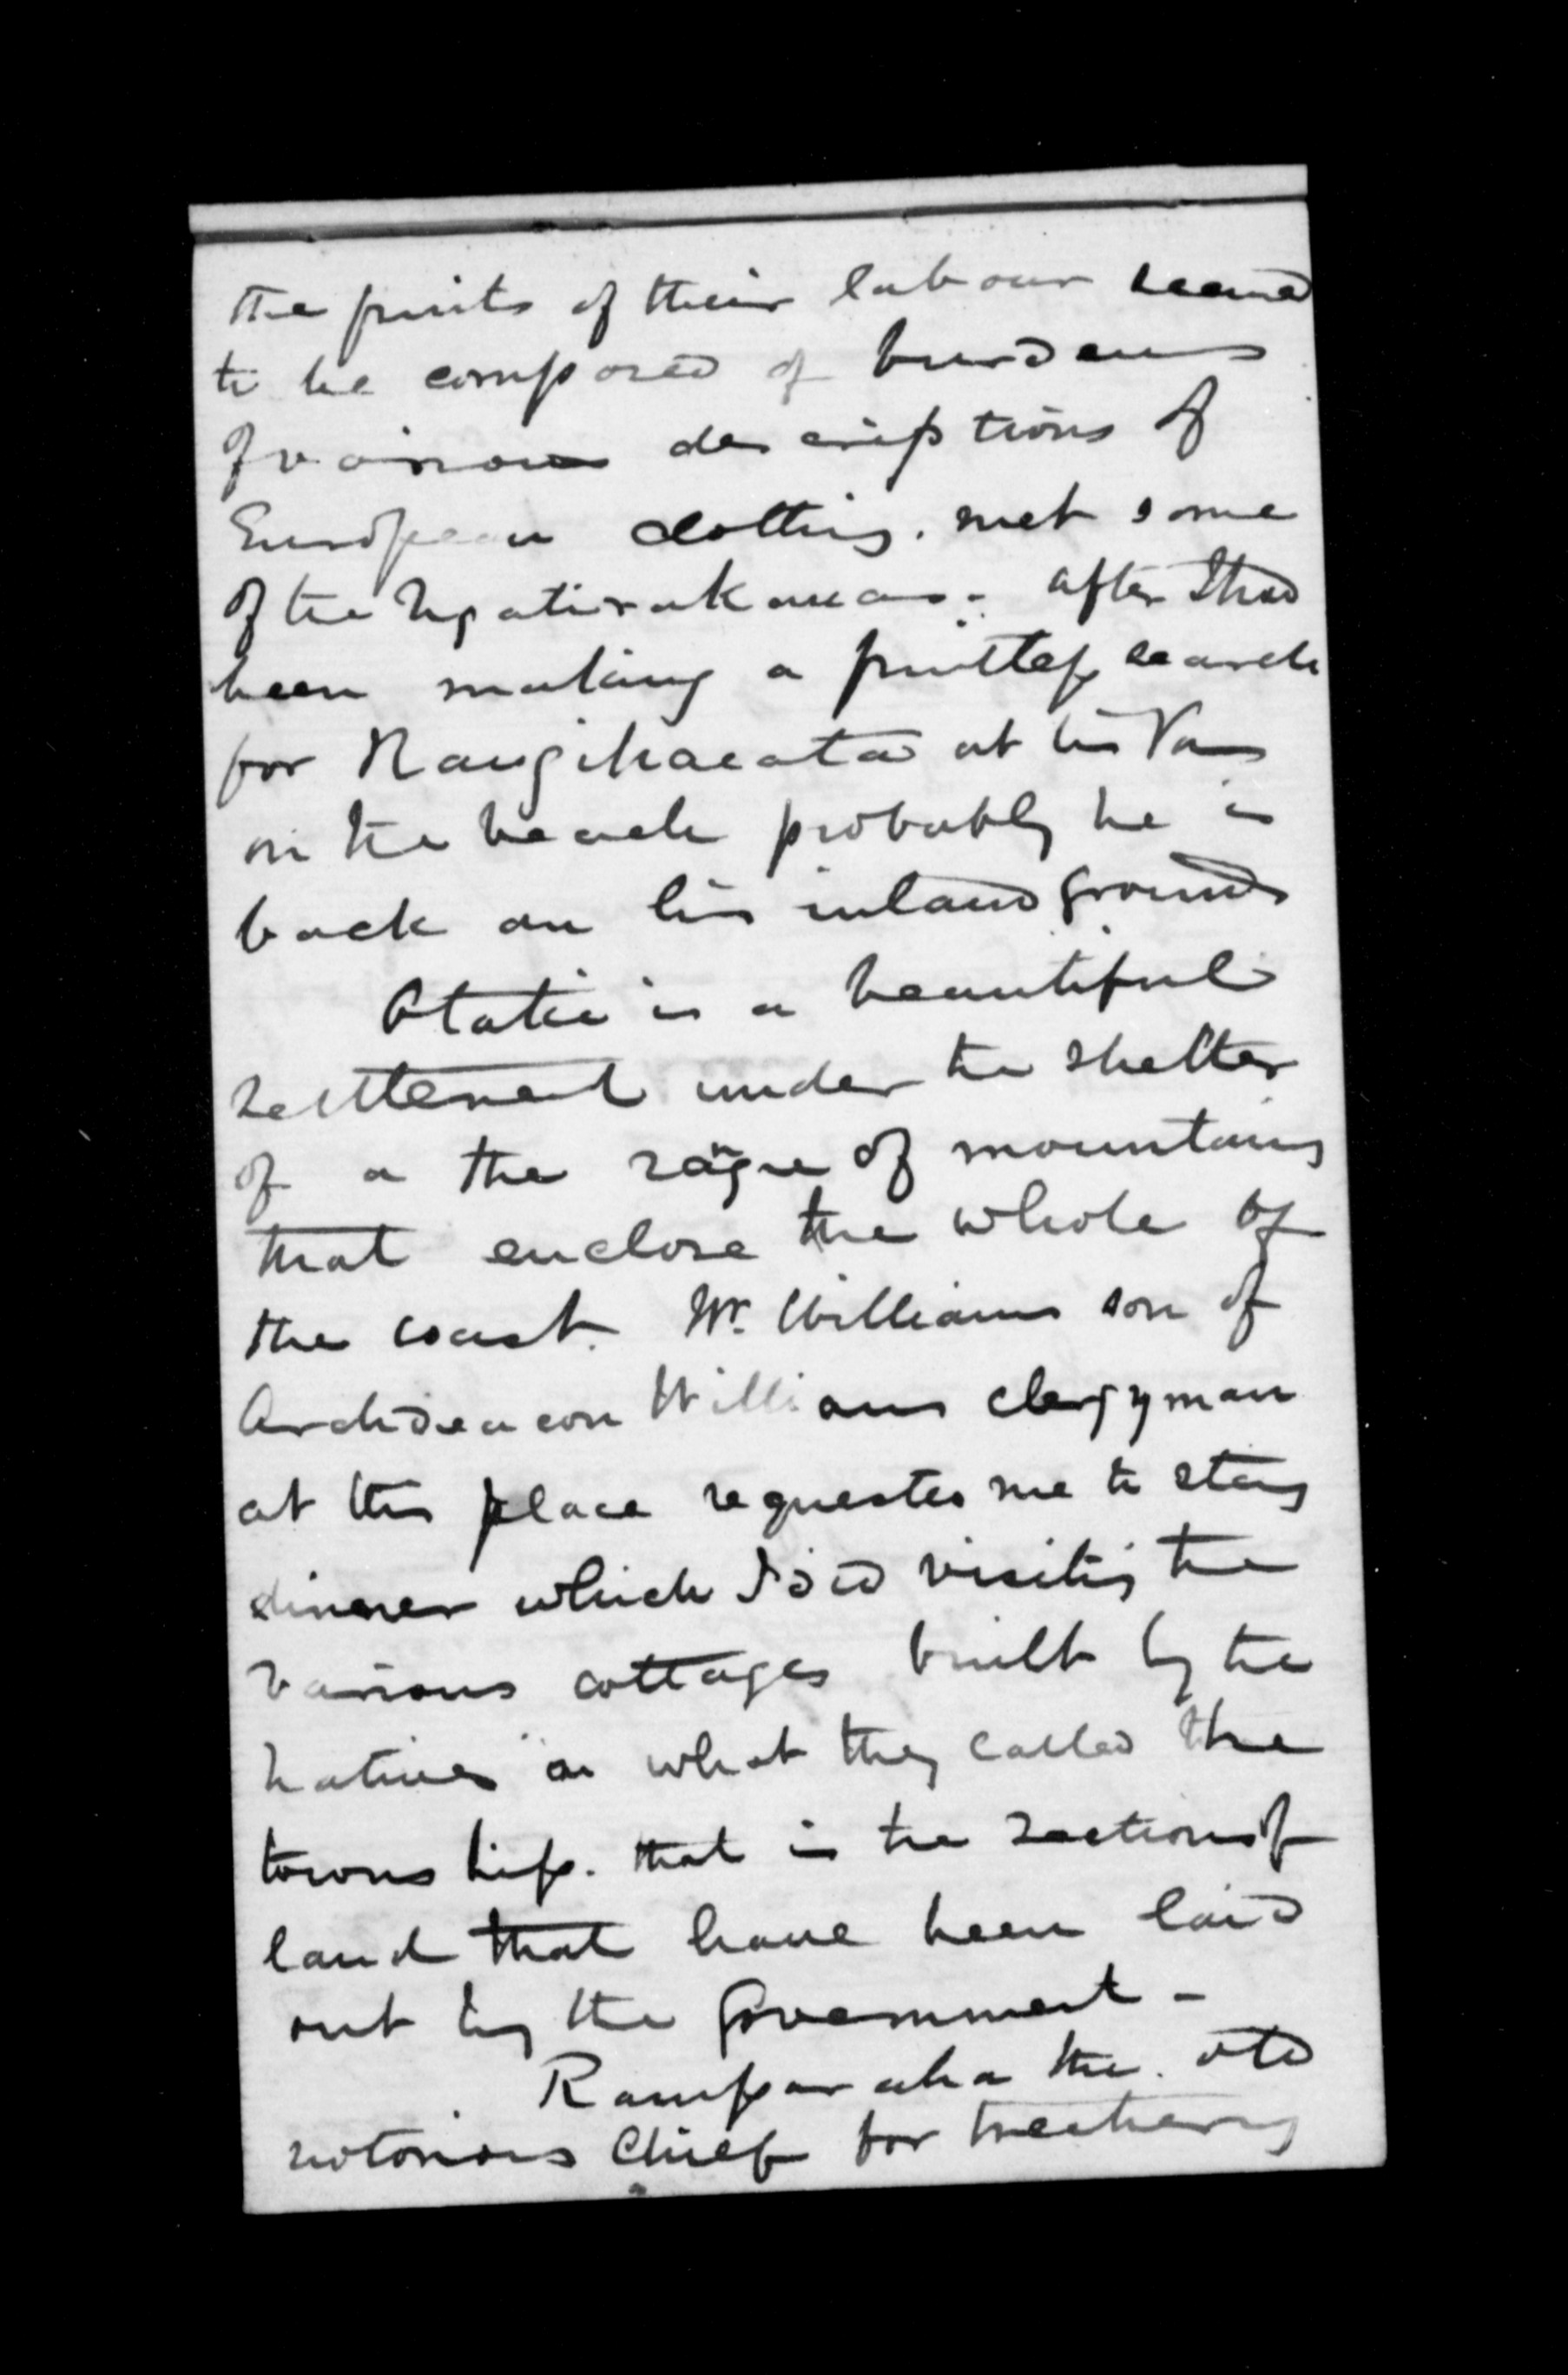 the fruits of their labour seemed
to be composed of burdens
of various descriptions of
European clothing. met some
of the Ngatiraukauas. after I had
been making a fruitless search
for Rangihaeata at his Pa
on the beach probably he is
back on his inland grounds
Otakie is a beautiful
settlement under the shelter
of a the range of mountains
that enclose the whole of
the coast. Mr. Williams son of
Archdeacon Williams clergyman
at this place requested me to stay
dinner which I did visiting the
various cottages built by the
natives on what they called the
township. that is the sections of
land that have been laid
out by the Government -
Rauparaha the old
notorious Chief for treachery